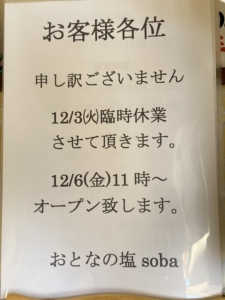 お客様各位
申し訳ございません
12/3㈫臨時休業
させて頂きます。
12/6(金)11時〜
オープン致します。
おとなの塩 soba